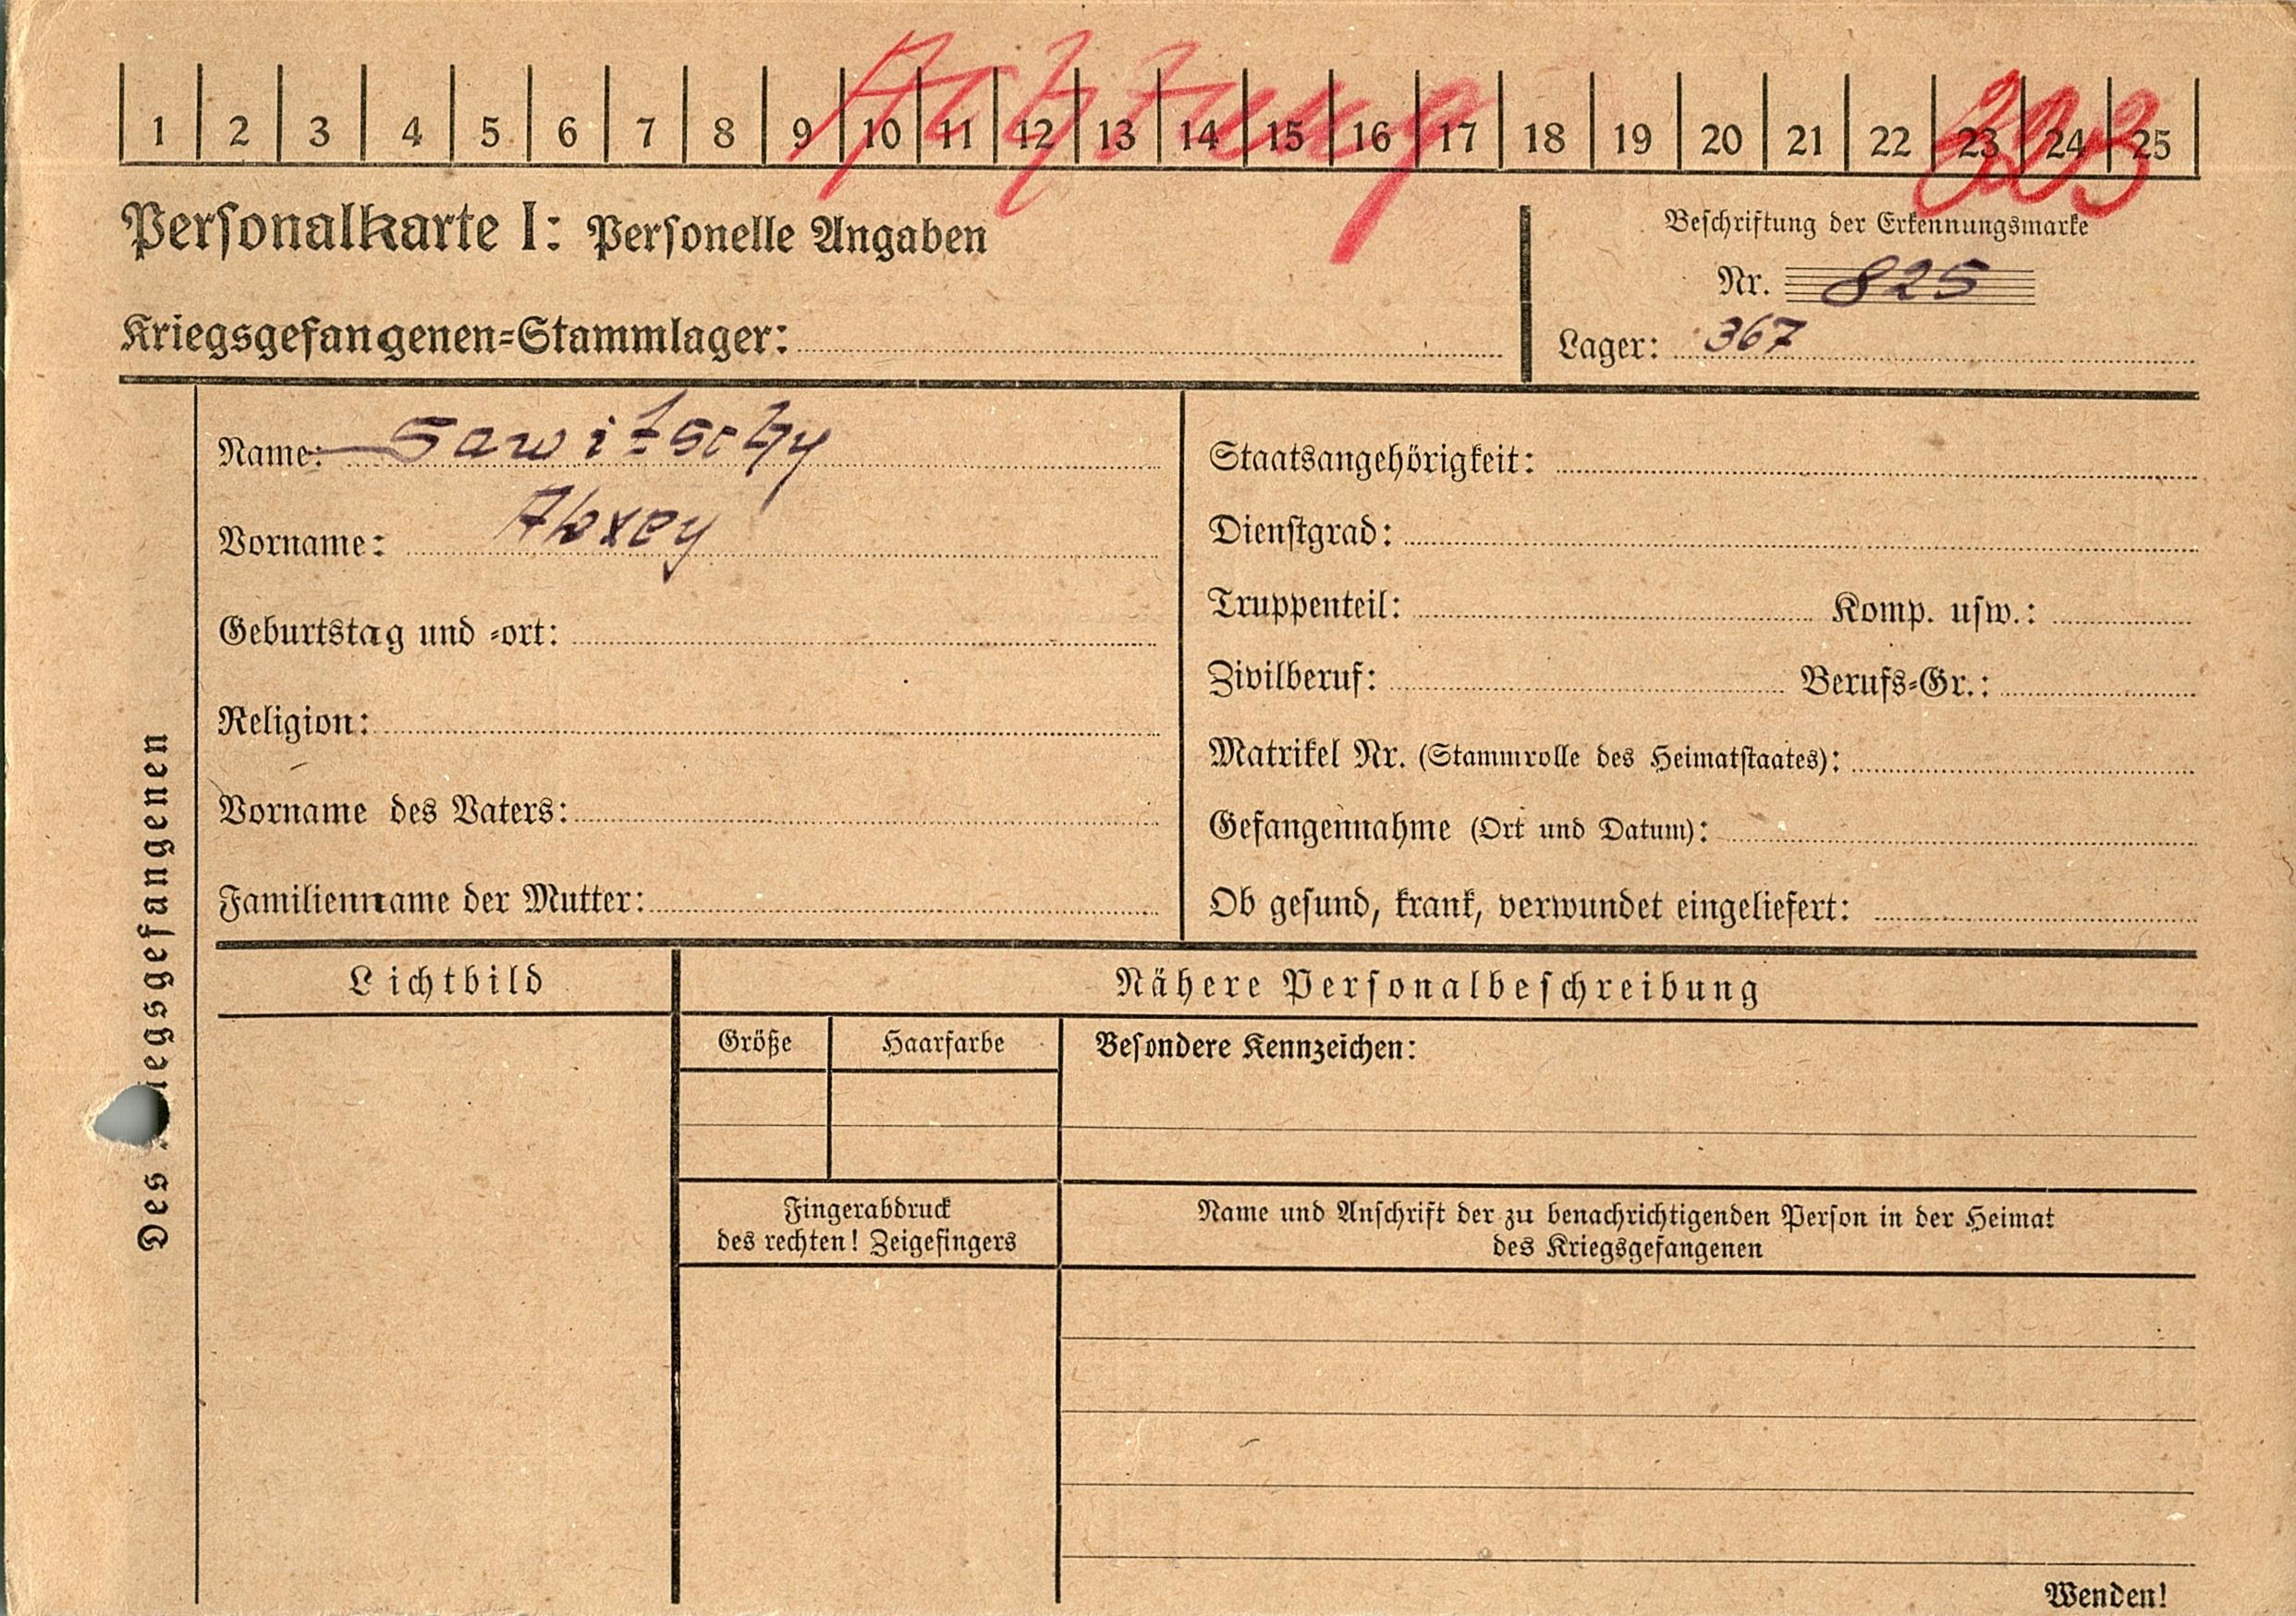 1 2 3 4 5 6 7 8 9 10 11 12 13 14 15 16 17 18 19 20 21 22 23 24 25
Achtung
Personalkarte I: Personelle Angaben
Beschriftung der Erkennungsmarke
Nr. 825
Kriegsgefangenen=Stammlager:
Lager: 367
Name: Sawitschy
Vorname:
Geburtstag und =ort:
Religion:
Vorname des Vaters:
Familienname der Mutter:
Staatsangehörigkeit:
Dienstgrad:
Truppenteil: Komp. usw.:
Zivilberuf: Berufs=Gr.:
Matrikel Nr. (Stammrolle des Heimatstaates):
Gefangennahme (Ort und Datum):
Ob gesund, krank, verwundet eingeliefert:
Des iegsgefangenen
Lichtbild
Nähere Personalbeschreibung
Größe Haarfarbe
Besondere Kennzeichen:
Fingerabdruck
des rechten! Zeigefingers
Name und Anschrift der zu benachrichtigenden Person in der Heimat
des Kriegsgefangenen
Wenden!